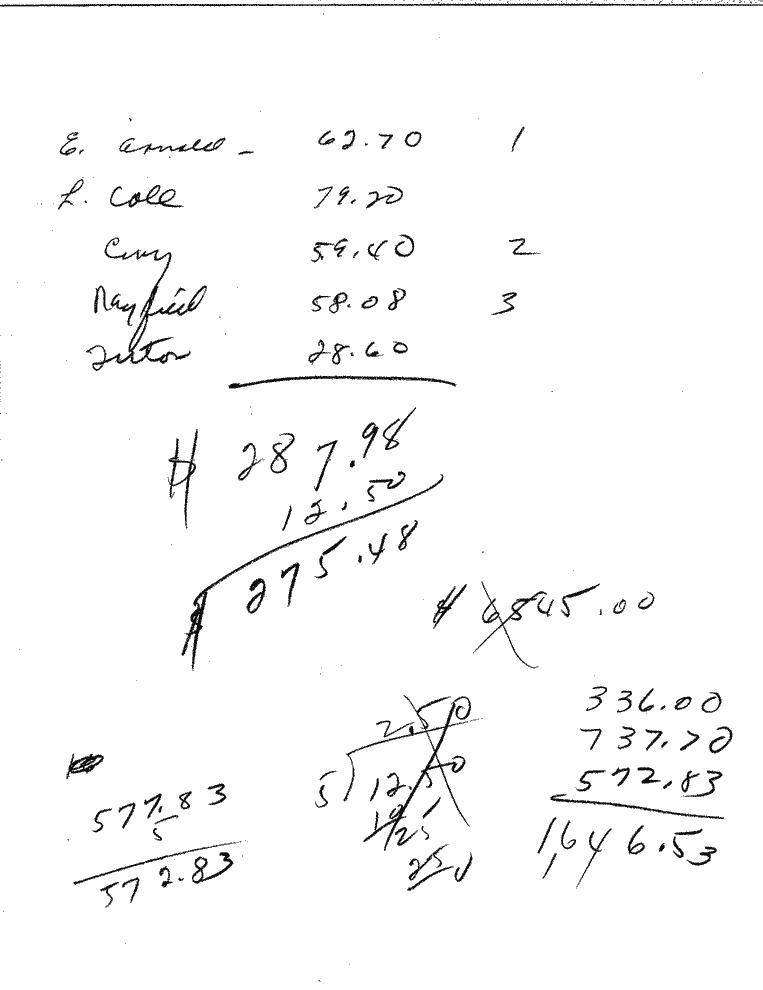 E. Arnold - 62.70 1
L. Cole 79.20
59.40 2
Mayfield 58.08 3
28.60
$ 287.98
12.50
$ 275.48
$ 6845.00
2.50
5 ) 12.50
10
25
25 0
577.83
5
572.83
336.00
737.70
572.83
1,646.53